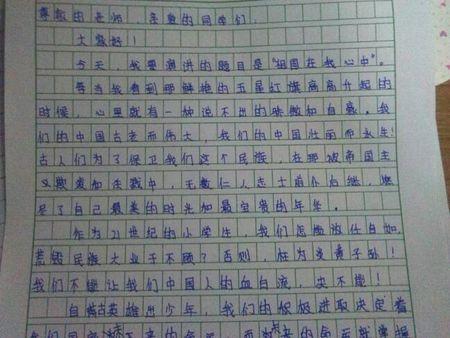 尊敬的老师，亲爱的同学们，
大家好！
今天，我要演讲的题目是"祖国在我心中"。
每当我看到那鲜艳的五星红旗高高升起的
时候，心里就有一种说不出的骄傲和自豪。我
们的中国古老而伟大，我们的中国壮丽而永生！
古人们为了保卫我们这个民族，在那被帝国主
义欺凌和生戮中，无数仁人志士前仆后继，燃
尽了自己最美的时光和最宝贵的年华。
作为21世纪的小学生，我们怎能放任自如，
荒锻民族大业于不顾？否则，枉为炎黄子孙！
我们不能让我们中国人的血白流，决不能！
自古英雄出少年，我们的积极进取决定着
我们国家未来的命